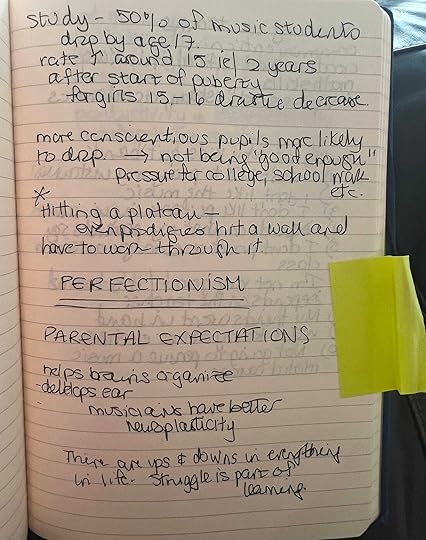 study - 50% of music students
drop by age 17.
rate ↑ around 15 ie 2 years
after start of puberty
for girls 15-16 drastic decrease.
more conscientious pupils more likely
to drop → not being "good enough"
pressure for college, school work
etc.
*
Hitting a plateau -
even prodigies hit a wall and
have to work through it.
PERFECTIONISM
PARENTAL EXPECTATIONS
helps brains organize
- develops ear
- musicians have better
neuroplasticity
There are ups & downs in everything
in life. Struggle is part of
learning.